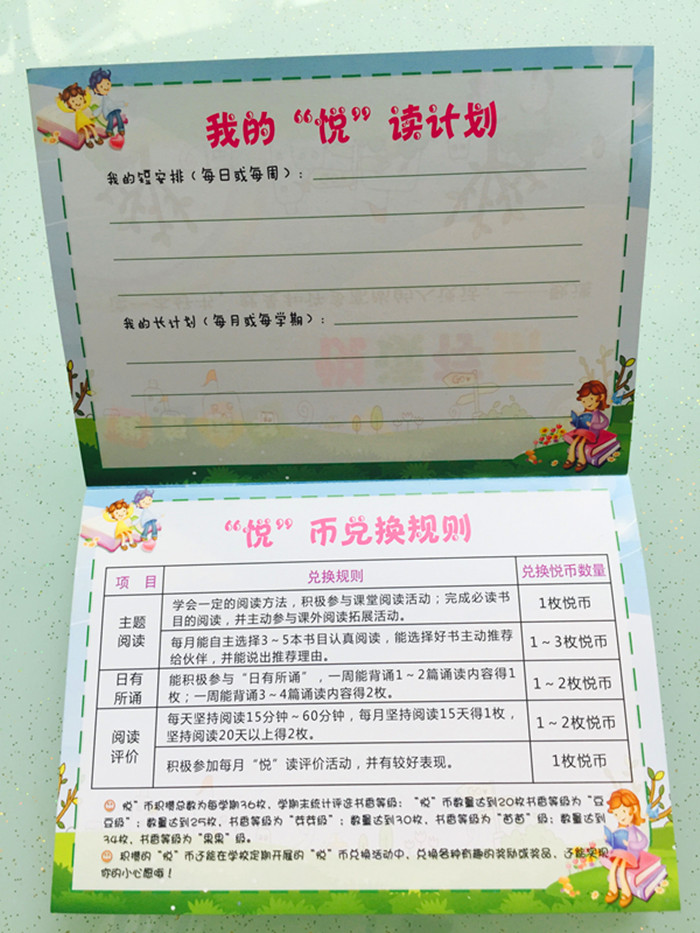 我的“悦”读计划
我的短安排（每日或每周）：
我的长计划（每月或每学期）：
“悦”币兑换规则
项 目 兑换规则 兑换悦币数量
主题
阅读
学会一定的阅读方法，积极参与课堂阅读活动；完成必读书
目的阅读，并主动参与课外阅读拓展活动。
1枚悦币
每月能自主选择3～5本书目认真阅读，能选择好书主动推荐
给伙伴，并能说出推荐理由。
1～3枚悦币
日有
所诵
能积极参与“日有所诵”，一周能背诵1～2篇诵读内容得1
枚；一周能背诵3～4篇诵读内容得2枚。
1～2枚悦币
阅读
评价
每天坚持阅读15分钟～60分钟，每月坚持阅读15天得1枚，
坚持阅读20天以上得2枚。
1～2枚悦币
积极参加每月“悦”读评价活动，并有较好表现。
1枚悦币
悦”币积攒总数为每学期36枚，学期末统计评选书香等级：“悦”币数量达到20枚书香等级为“豆
豆级”；数量达到25枚，书香等级为“芽芽级”；数量达到30枚，书香等级为“苗苗”级；数量达到
34枚，书香等级为“果果”级。
积攒的“悦”币还能在学校定期开展的“悦”币兑换活动中，兑换各种有趣的奖励或奖品，还能实现
你的小心愿哦！